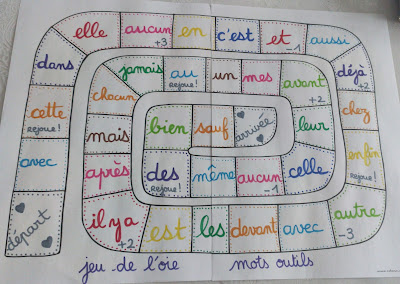 départ
avec
cette
rejoue!
dans
elle
aucun
+3
en
c'est
et
-1
aussi
déjà
+2
chez
enfin
rejoue!
autre
-3
avec
devant
les
est
il y a
+2
après
mais
chacun
jamais
au
rejoue!
un
mes
avant
+2
leur
celle
aucun
-1
même
des
rejoue!
bien
sauf
arrivée
jeu de l'oie mots outils